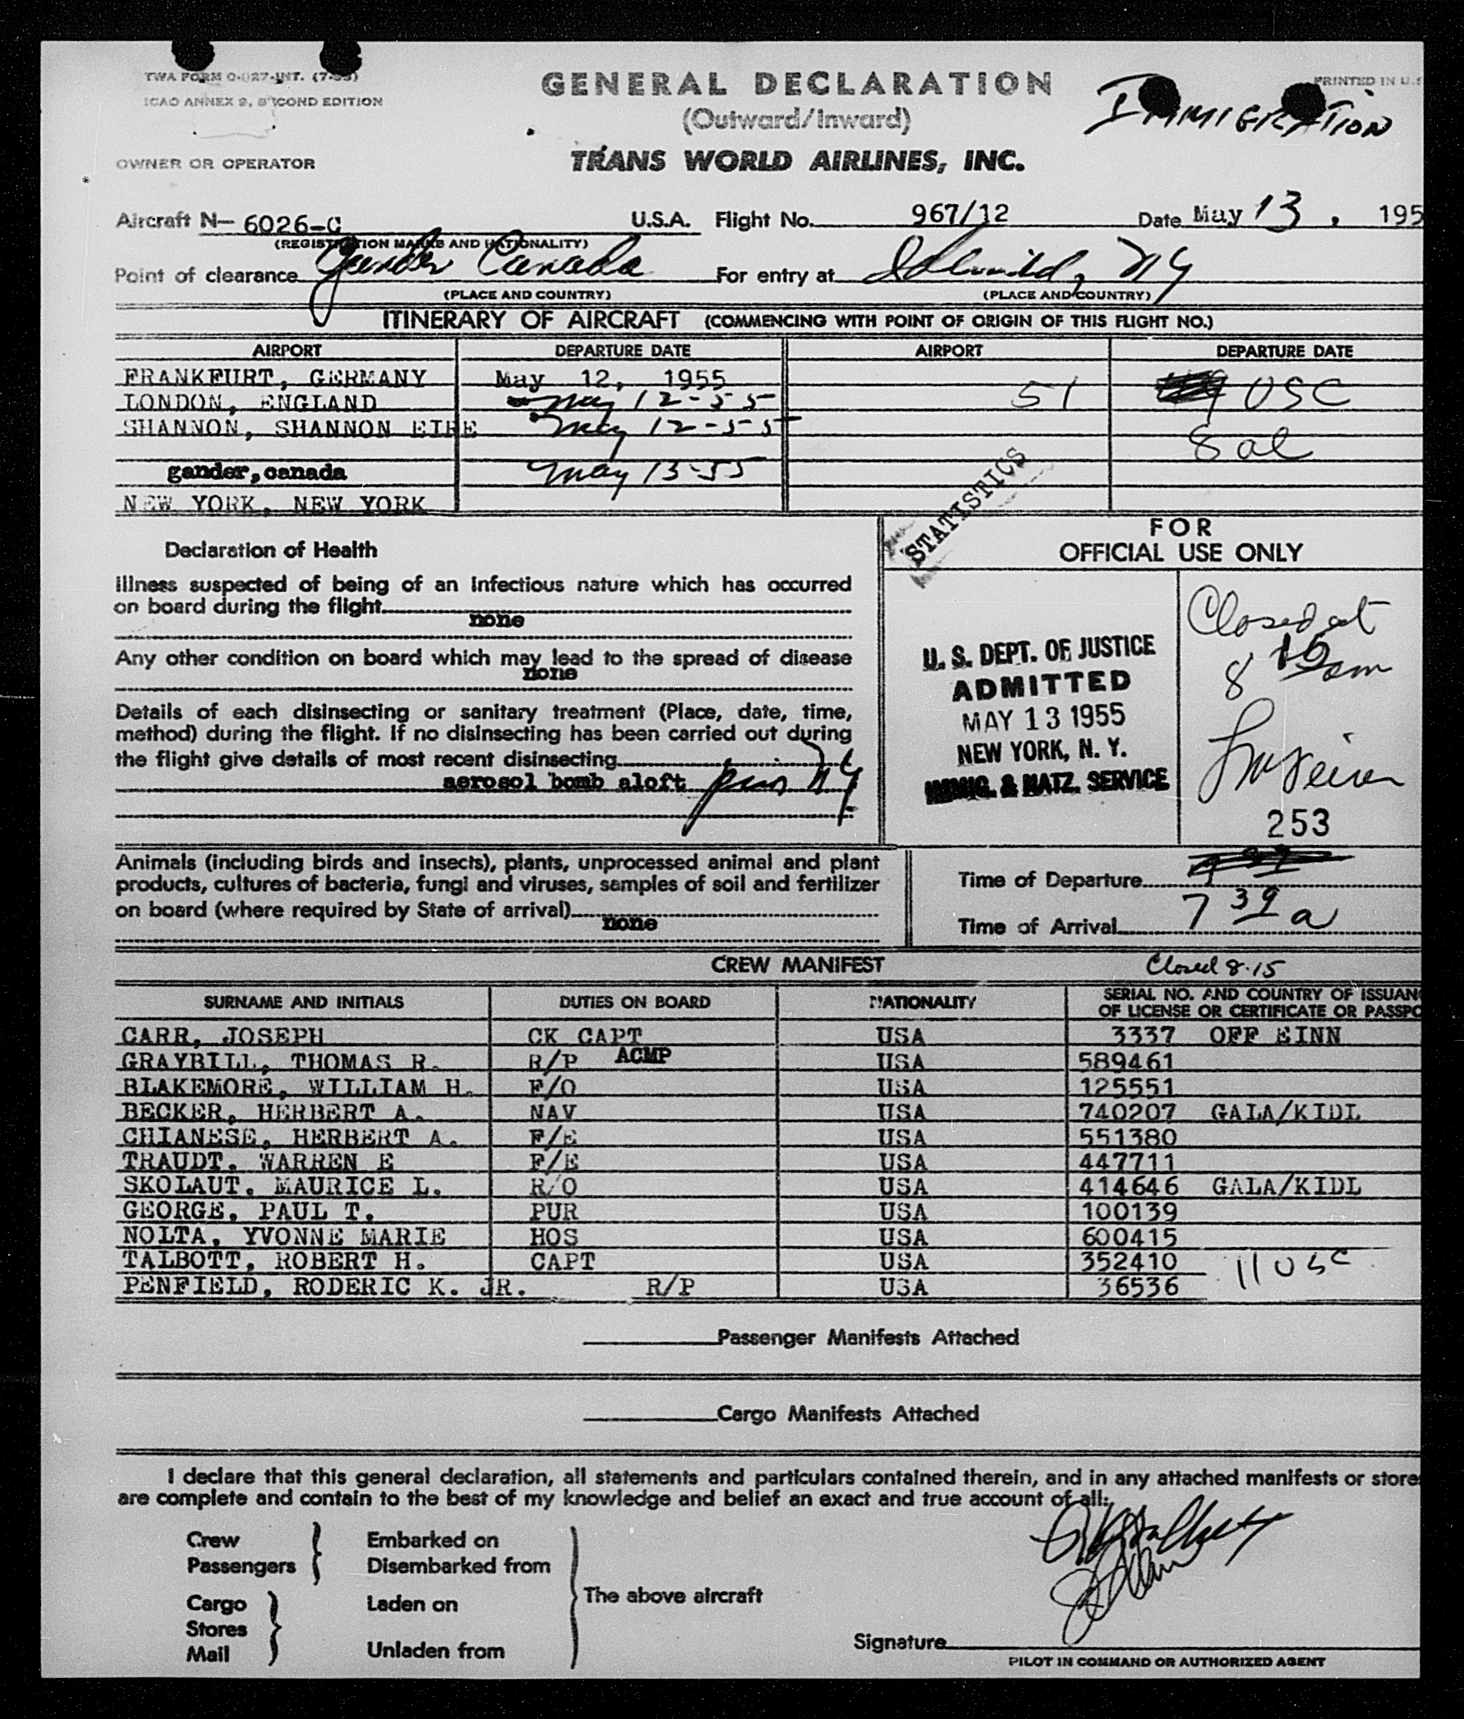 TWA FORM O-027-INT. (7-53)
ICAO ANNEX 9, SECOND EDITION
GENERAL DECLARATION
PRINTED IN U.S
(Outward/Inward)
IMMIGRATION
OWNER OR OPERATOR
TRANS WORLD AIRLINES, INC.
Aircraft N— 6026-C U.S.A. Flight No. 967/12 Date May 13, 195
(REGISTRATION MARKS AND NATIONALITY)
Point of clearance Gander Canada For entry at Idlewild, NY
(PLACE AND COUNTRY) (PLACE AND COUNTRY)
ITINERARY OF AIRCRAFT (COMMENCING WITH POINT OF ORIGIN OF THIS FLIGHT NO.)
AIRPORT DEPARTURE DATE AIRPORT DEPARTURE DATE
FRANKFURT, GERMANY May 12, 1955 51 USC
LONDON, ENGLAND May 12-55
SHANNON, SHANNON EIRE May 12-55 8 al
gander, canada May 13-55
NEW YORK, NEW YORK
STATISTICS
FOR
OFFICIAL USE ONLY
Declaration of Health
Illness suspected of being of an infectious nature which has occurred
on board during the flight
none
Any other condition on board which may lead to the spread of disease
none
Details of each disinsecting or sanitary treatment (Place, date, time,
method) during the flight. If no disinsecting has been carried out during
the flight give details of most recent disinsecting
aerosol bomb aloft NY
U. S. DEPT. OF JUSTICE
ADMITTED
MAY 13 1955
NEW YORK, N. Y.
IMMIG. & NATZ. SERVICE
Closed at
8 15 am
253
Animals (including birds and insects), plants, unprocessed animal and plant
products, cultures of bacteria, fungi and viruses, samples of soil and fertilizer
on board (where required by State of arrival)
none
Time of Departure
Time of Arrival 7 39 a
CREW MANIFEST Closed 8-15
SURNAME AND INITIALS DUTIES ON BOARD NATIONALITY SERIAL NO. AND COUNTRY OF ISSUAN
OF LICENSE OR CERTIFICATE OR PASSPO
CARR, JOSEPH CK CAPT USA 3337 OFF EINN
GRAYBILL, THOMAS R. R/P ACMP USA 589461
BLAKEMORE, WILLIAM H. F/O USA 125551
BECKER, HERBERT A. NAV USA 740207 GALA/KIDL
CHIANESE, HERBERT A. F/E USA 551380
TRAUDT, WARREN E F/E USA 447711
SKOLAUT, MAURICE L. R/O USA 414646 GALA/KIDL
GEORGE, PAUL T. PUR USA 100139
NOLTA, YVONNE MARIE HOS USA 600415
TALBOTT, ROBERT H. CAPT USA 352410 11 USC
PENFIELD, RODERIC K. JR. R/P USA 36536
Passenger Manifests Attached
Cargo Manifests Attached
I declare that this general declaration, all statements and particulars contained therein, and in any attached manifests or store
are complete and contain to the best of my knowledge and belief an exact and true account of all:
Crew Embarked on
Passengers Disembarked from
The above aircraft
Cargo Laden on
Stores
Mail Unladen from
Signature
PILOT IN COMMAND OR AUTHORIZED AGENT